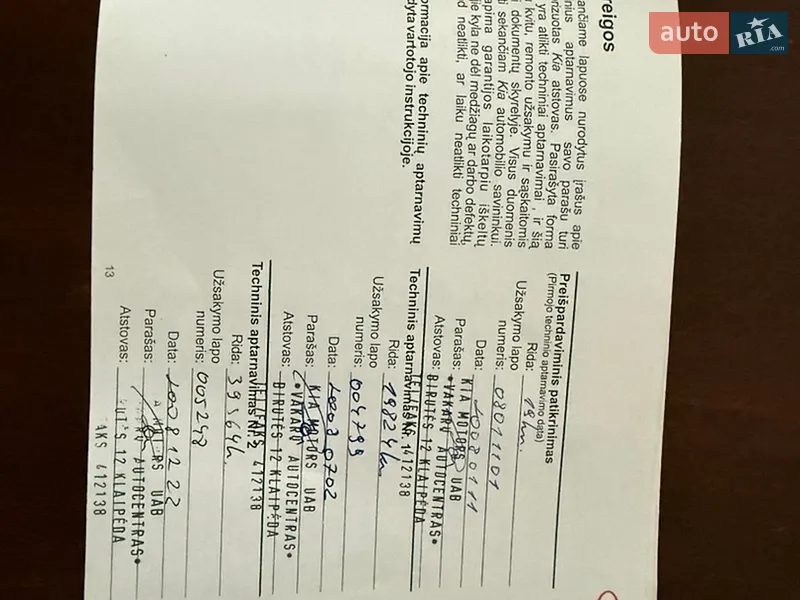 auto RIA .com
reigos
ančiame lapuose nurodytus įrašus apie
nius aptarnavimus savo parašu turi
rizuotas Kia atstovas. Pasirašyta forma
yra atlikti techniniai aptarnavimai, ir šią
kvitu, remonto užsakymu ir sąskaitomis
i dokumentų skyrelyje. Visus duomenis
ti sekančiam Kia automobilio savininkui.
apima garantijos laikotarpiu iškeltų
je kyla ne dėl medžiagų ar darbo defektų,
d neatlikti, ar laiku neatlikti techniniai
ormacija apie techninių aptarnavimų
dyta vartotojo instrukcijoje.
Preišpardaviminis patikrinimas
(Pirmojo techninio aptarnavimo data)
Rida: 19km.
Užsakymo lapo
numeris: 08011101
Data: 20080111
Parašas: KIA MOTORS UAB
•VAKARŲ AUTOCENTRAS•
Atstovas: BIRUTĖS 12 KLAIPĖDA
412138
Techninis aptarnavimas Nr. 1
Rida: 19824km
Užsakymo lapo
numeris: 004799
Data: 20080702
Parašas: KIA MOTORS UAB
•VAKARŲ AUTOCENTRAS•
Atstovas: BIRUTĖS 12 KLAIPĖDA
412138
Techninis aptarnavimas Nr. 2
Rida: 39564k.
Užsakymo lapo
numeris: 005248
Data: 20081222
Parašas: UAB
AUTOCENTRAS•
Atstovas: 12 KLAIPĖDA
412138
13